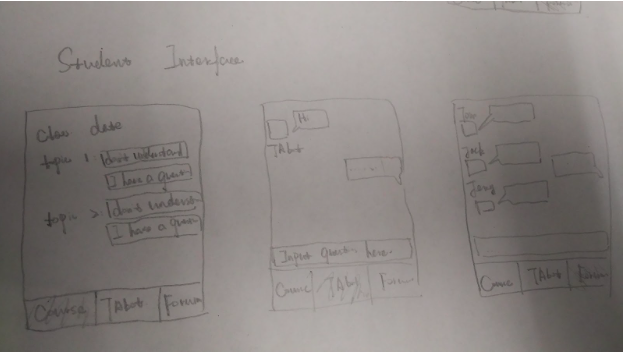 Student Interface
class date
topic 1 I don't understand
I have a question
topic 2 I don't understand
I have a question
Course TAbot Forum
Hi
TAbot
...
Input question here.
Course TAbot Forum
Course TAbot Forum